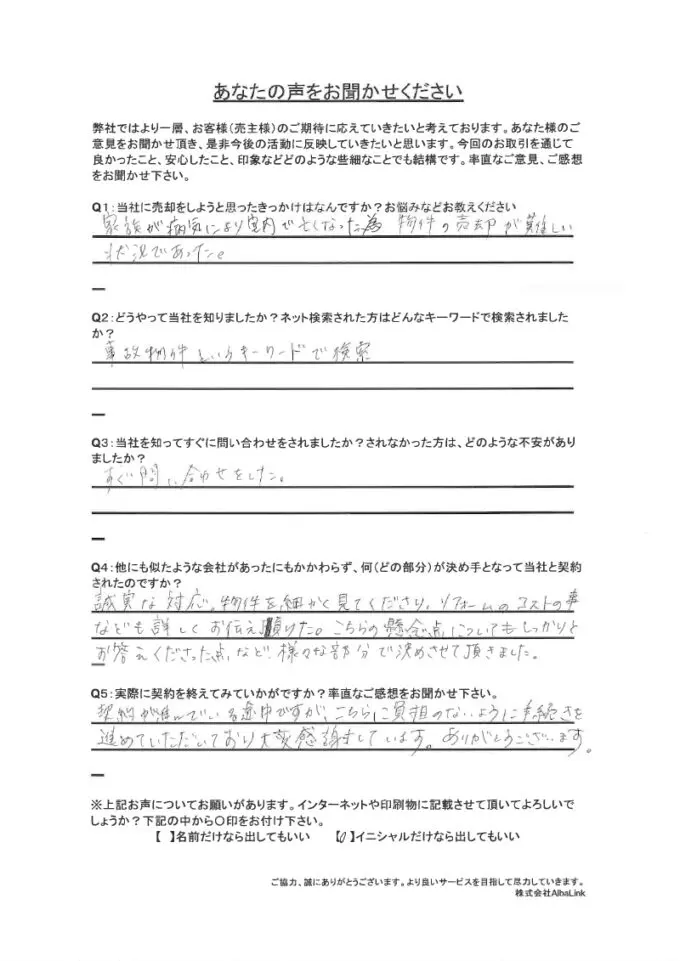 あなたの声をお聞かせください
弊社ではより一層、お客様(売主様)のご期待に応えていきたいと考えております。あなた様のご
意見をお聞かせ頂き、是非今後の活動に反映していきたいと思います。今回のお取引を通じて
良かったこと、安心したこと、印象などどのような些細なことでも結構です。率直なご意見、ご感想
をお聞かせ下さい。
Q1:当社に売却をしようと思ったきっかけはなんですか?お悩みなどお教えください
家族が病気により室内で亡くなった為 物件の売却が難しい
状況であった。
Q2:どうやって当社を知りましたか?ネット検索された方はどんなキーワードで検索されました
か?
事故物件というキーワードで検索
Q3:当社を知ってすぐに問い合わせをされましたか?されなかった方は、どのような不安があり
ましたか?
すぐ問い合わせをした。
Q4:他にも似たような会社があったにもかかわらず、何(どの部分)が決め手となって当社と契約
されたのですか?
誠実な対応。物件を細かく見てくださり、リフォームのコストの事
なども詳しくお伝え頂けた。こちらの懸念点についてもしっかりと
お答えくださった点など、様々な部分で決めさせて頂きました。
Q5:実際に契約を終えてみていかがですか?率直なご感想をお聞かせ下さい。
契約が進んでいる途中ですが、こちらに負担のないように手続きを
進めていただいており大変感謝しています。ありがとうございます。
※上記お声についてお願いがあります。インターネットや印刷物に記載させて頂いてよろしいで
しょうか?下記の中から○印をお付け下さい。
【 】名前だけなら出してもいい 【○】イニシャルだけなら出してもいい
ご協力、誠にありがとうございます。より良いサービスを目指して尽力していきます。
株式会社AlbaLink